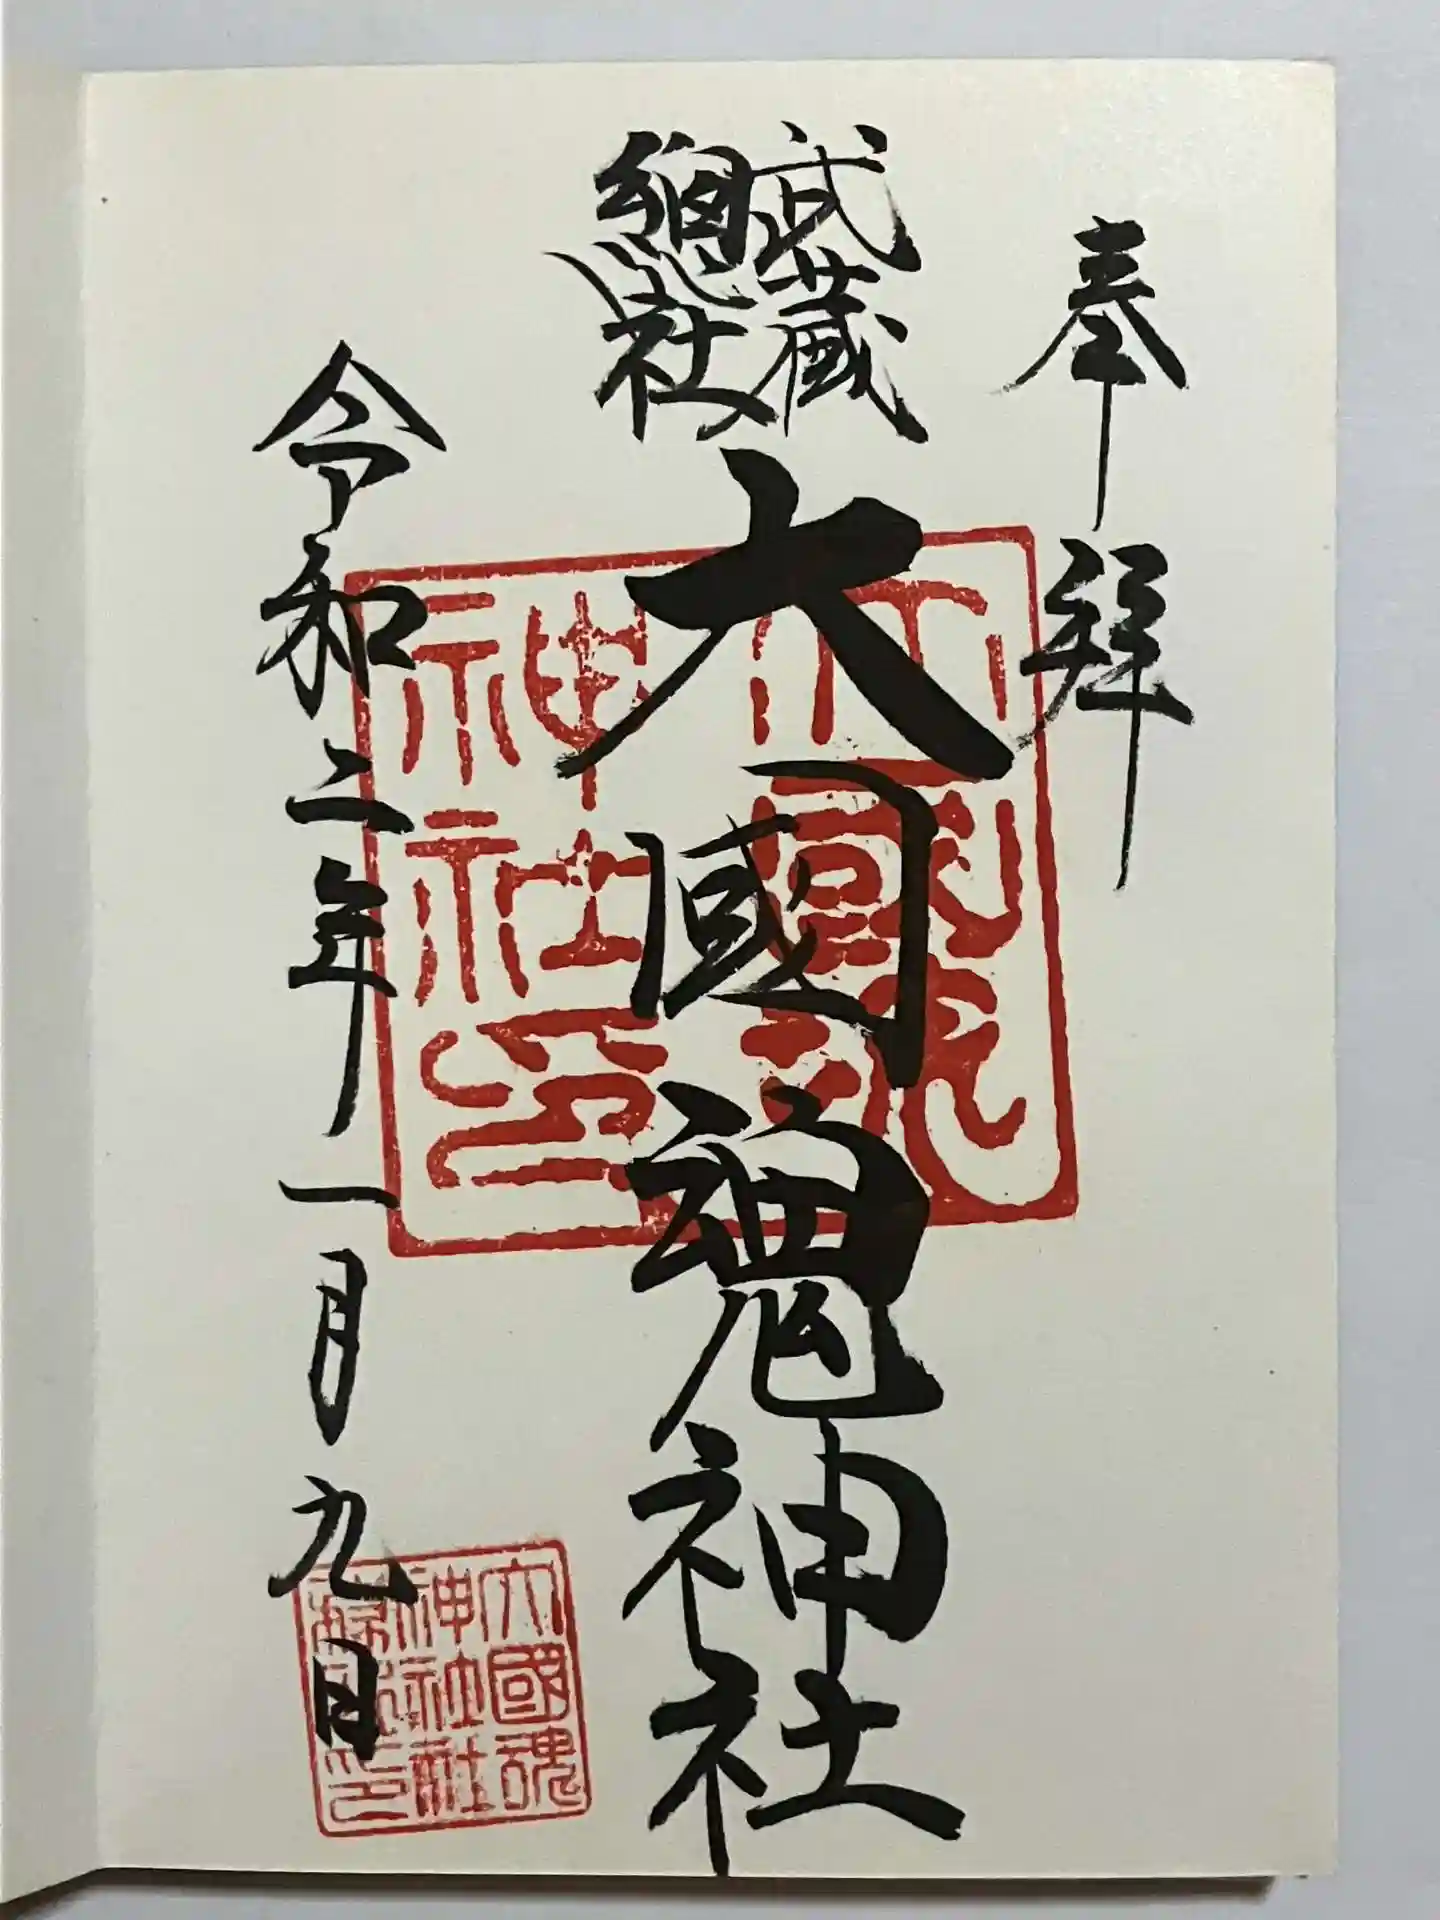 奉拝
武蔵
總社
大國魂神社
令和二年一月九日
大國魂
神社印
大國魂
神社社